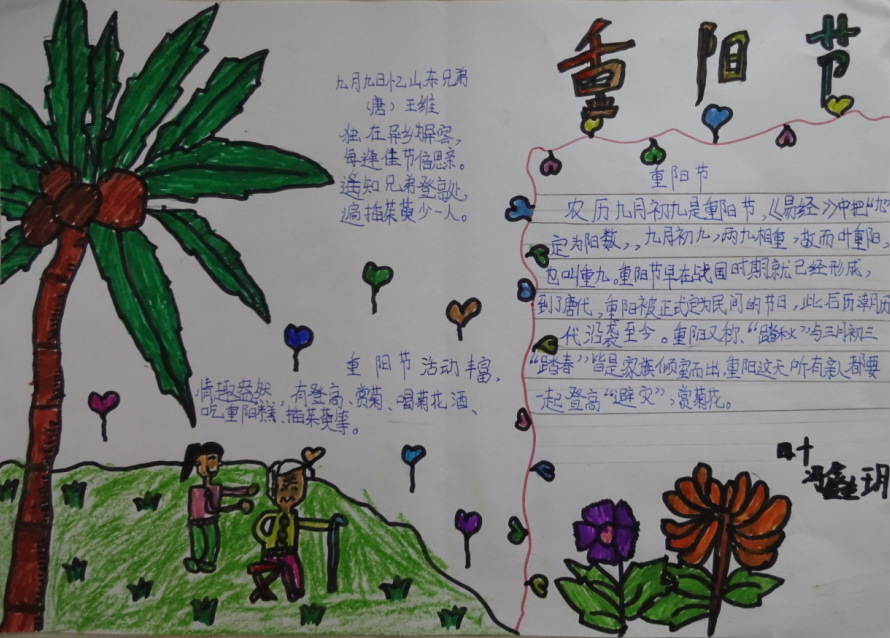 重阳节
九月九日忆山东兄弟
（唐）王维
独在异乡异客，
每逢佳节倍思亲。
遥知兄弟登高处，
遍插茱萸少一人。
重阳节活动丰富，
情趣盎然，有登高、赏菊、喝菊花酒、
吃重阳糕、插茱萸等。
重阳节
农历九月初九是重阳节，《易经》中把“九
定为阳数，，九月初九，两九相重，故而叫重阳，
也叫重九。重阳节早在战国时期就已经形成，
到了唐代，重阳被正式定为民间的节日，此后历朝历
代沿袭至今。重阳又称、“踏秋”与三月初三
“踏春”皆是家族倾室而出，重阳这天所有亲人都要
一起登高“避灾”，赏菊花。